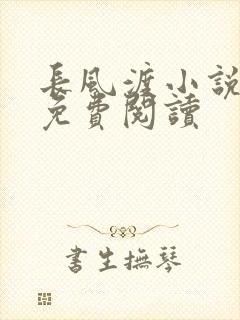 長風渡小說
免費閱讀
書生撫琴